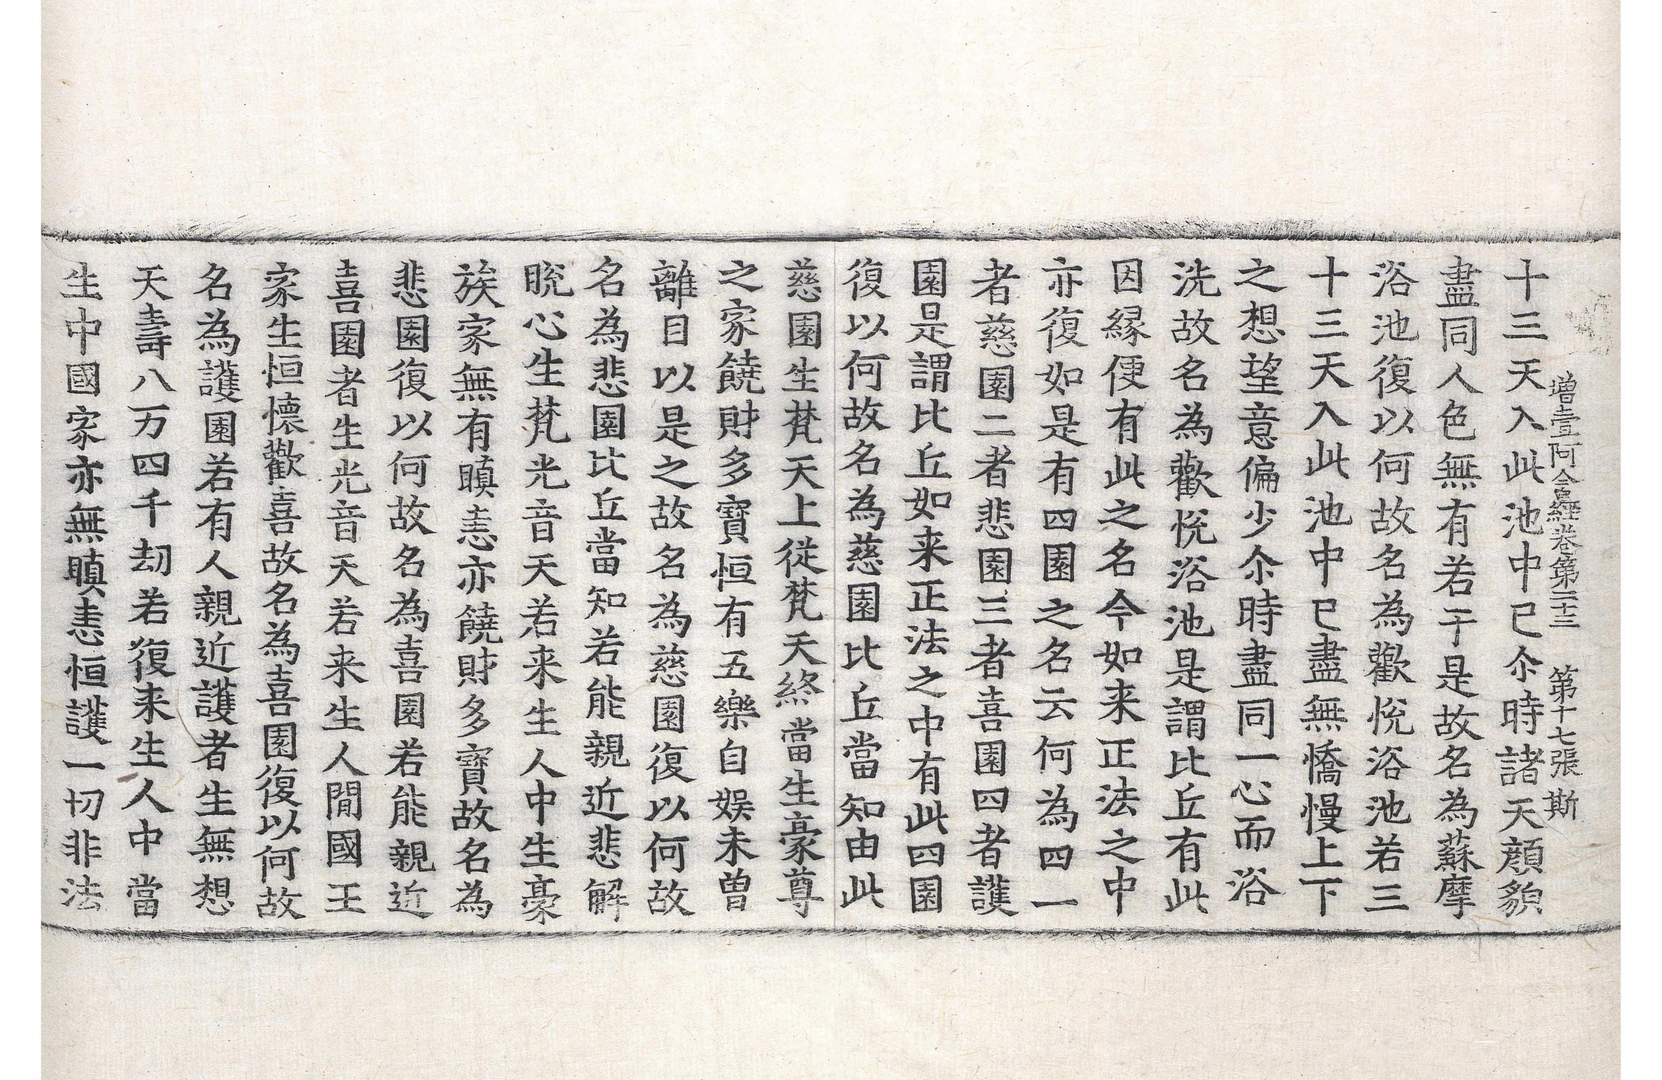 增壹阿含經卷第二十三　第十七張　斯
十三天入此池中已尒時諸天顔貌
盡同人色無有若干是故名為蘇摩
浴池復以何故名為歡悅浴池若三
十三天入此池中已盡無憍慢上下
之想望意偏少尒時盡同一心而浴
洗故名為歡悅浴池是謂比丘有此
因緣便有此之名今如来正法之中
亦復如是有四園之名云何為四一
者慈園二者悲園三者喜園四者護
園是謂比丘如来正法之中有此四園
復以何故名為慈園比丘當知由此
慈園生梵天上從梵天終當生豪尊
之家饒財多寶恒有五樂自娛未曽
離目以是之故名為慈園復以何故
名為悲園比丘當知若能親近悲解
脫心生梵光音天若来生人中生豪
族家無有瞋恚亦饒財多寶故名為
悲園復以何故名為喜園若能親近
喜園者生光音天若来生人間國王
家生恒懷歡喜故名為喜園復以何故
名為護園若有人親近護者生無想
天壽八万四千劫若復来生人中當
生中國家亦無瞋恚恒護一切非法